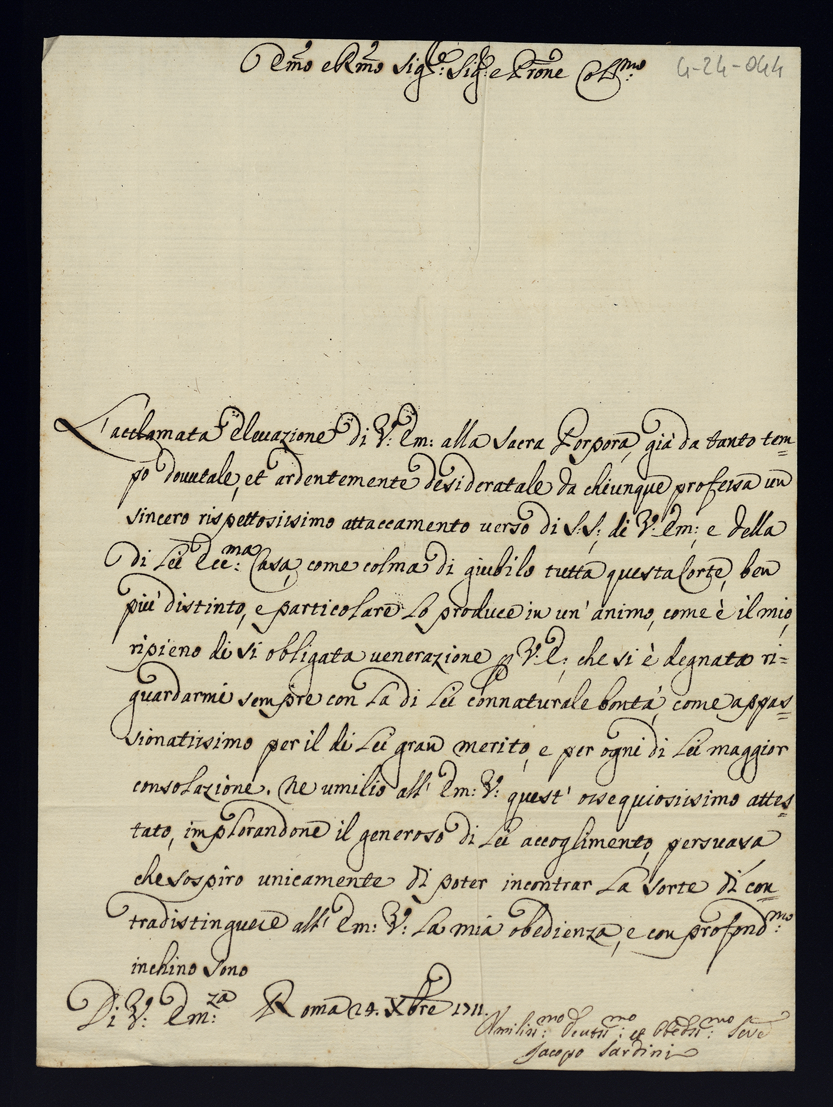 Em̃o e Rm̃o Sig.re Sig.re e P̃rone Coll.mo
4-24-044
L'acclamata elevazione di V. Em: alla Sacra Porpora, già da tanto tem=
po dovutale, et ardentemente desideratale da chiunque professa un
sincero rispettosissimo attaccamento verso di S.S: di V. Em: e della
di Lei Ecc.ma Casa, come colma di giubilo tutta questa Corte, ben
più distinto, e particolare lo produce in un' animo, come è il mio,
ripieno di sì obligata venerazione p V. E: che si è degnata ri=
guardarmi sempre con la di Lei connaturale bontà, come appas=
sionatissimo per il di Lei gran merito, e per ogni di Lei maggior
consolazione. Ne umilio all' Em: V: quest' ossequiosissimo attes=
tato, implorandone il generoso di Lei accoglimento, persuasa
che sospiro unicamente di poter incontrar la sorte di con
tradistinguere all' Em: V: la mia obedienza, e con profond.mo
inchino sono
Di V: Em.za Roma 24. Xbre 1711.
Umiliss.mo Devotiss.mo et Obedss.mo Serve
Jacopo Sardini